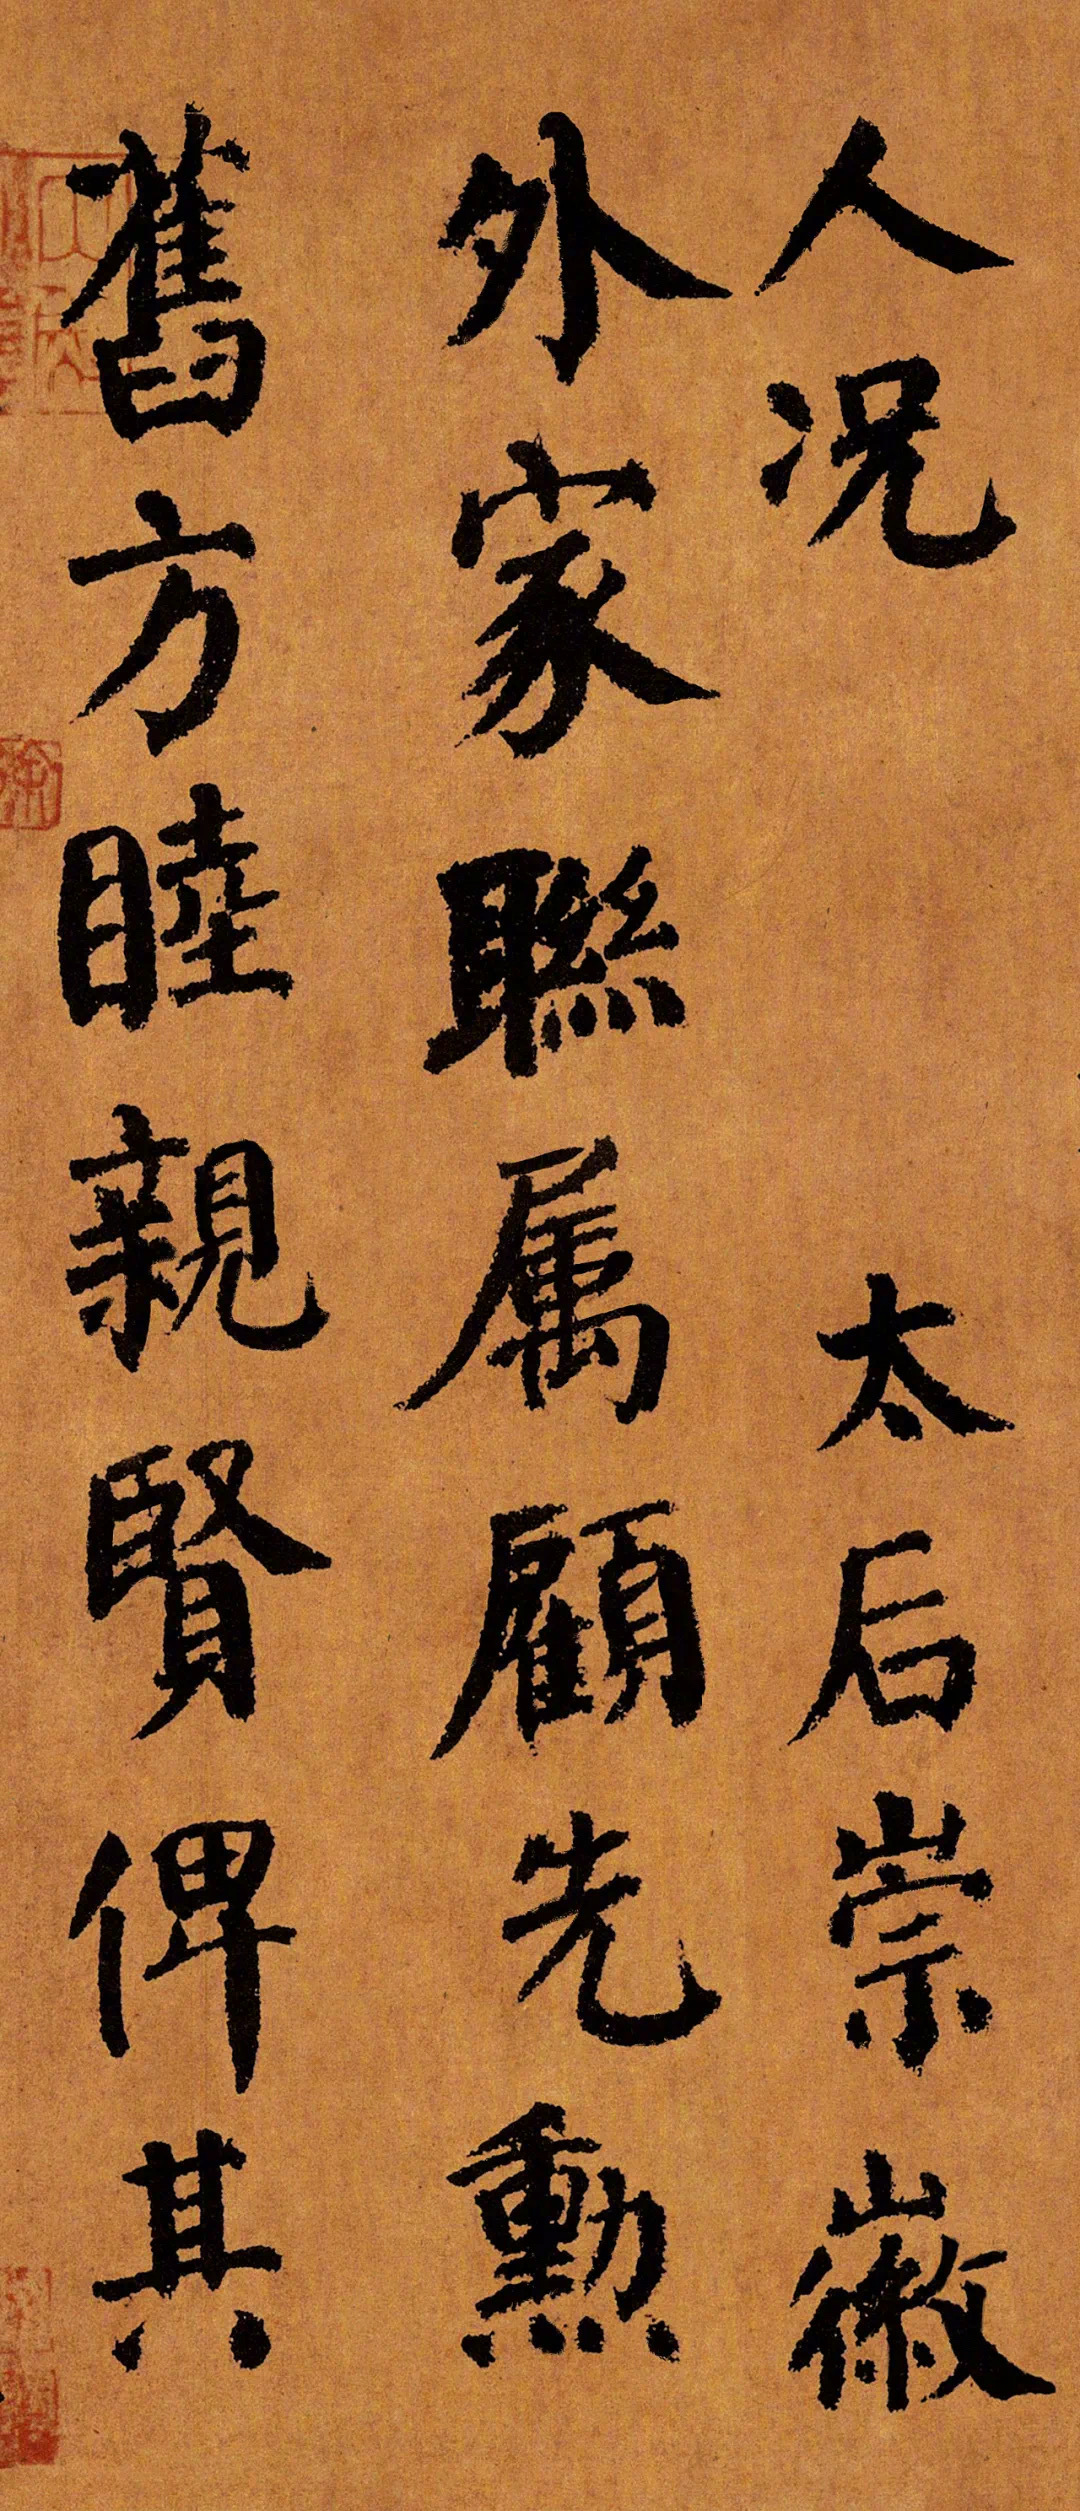 人况 太后崇徽
外家聯属顧先勲
舊方睦親賢俾其